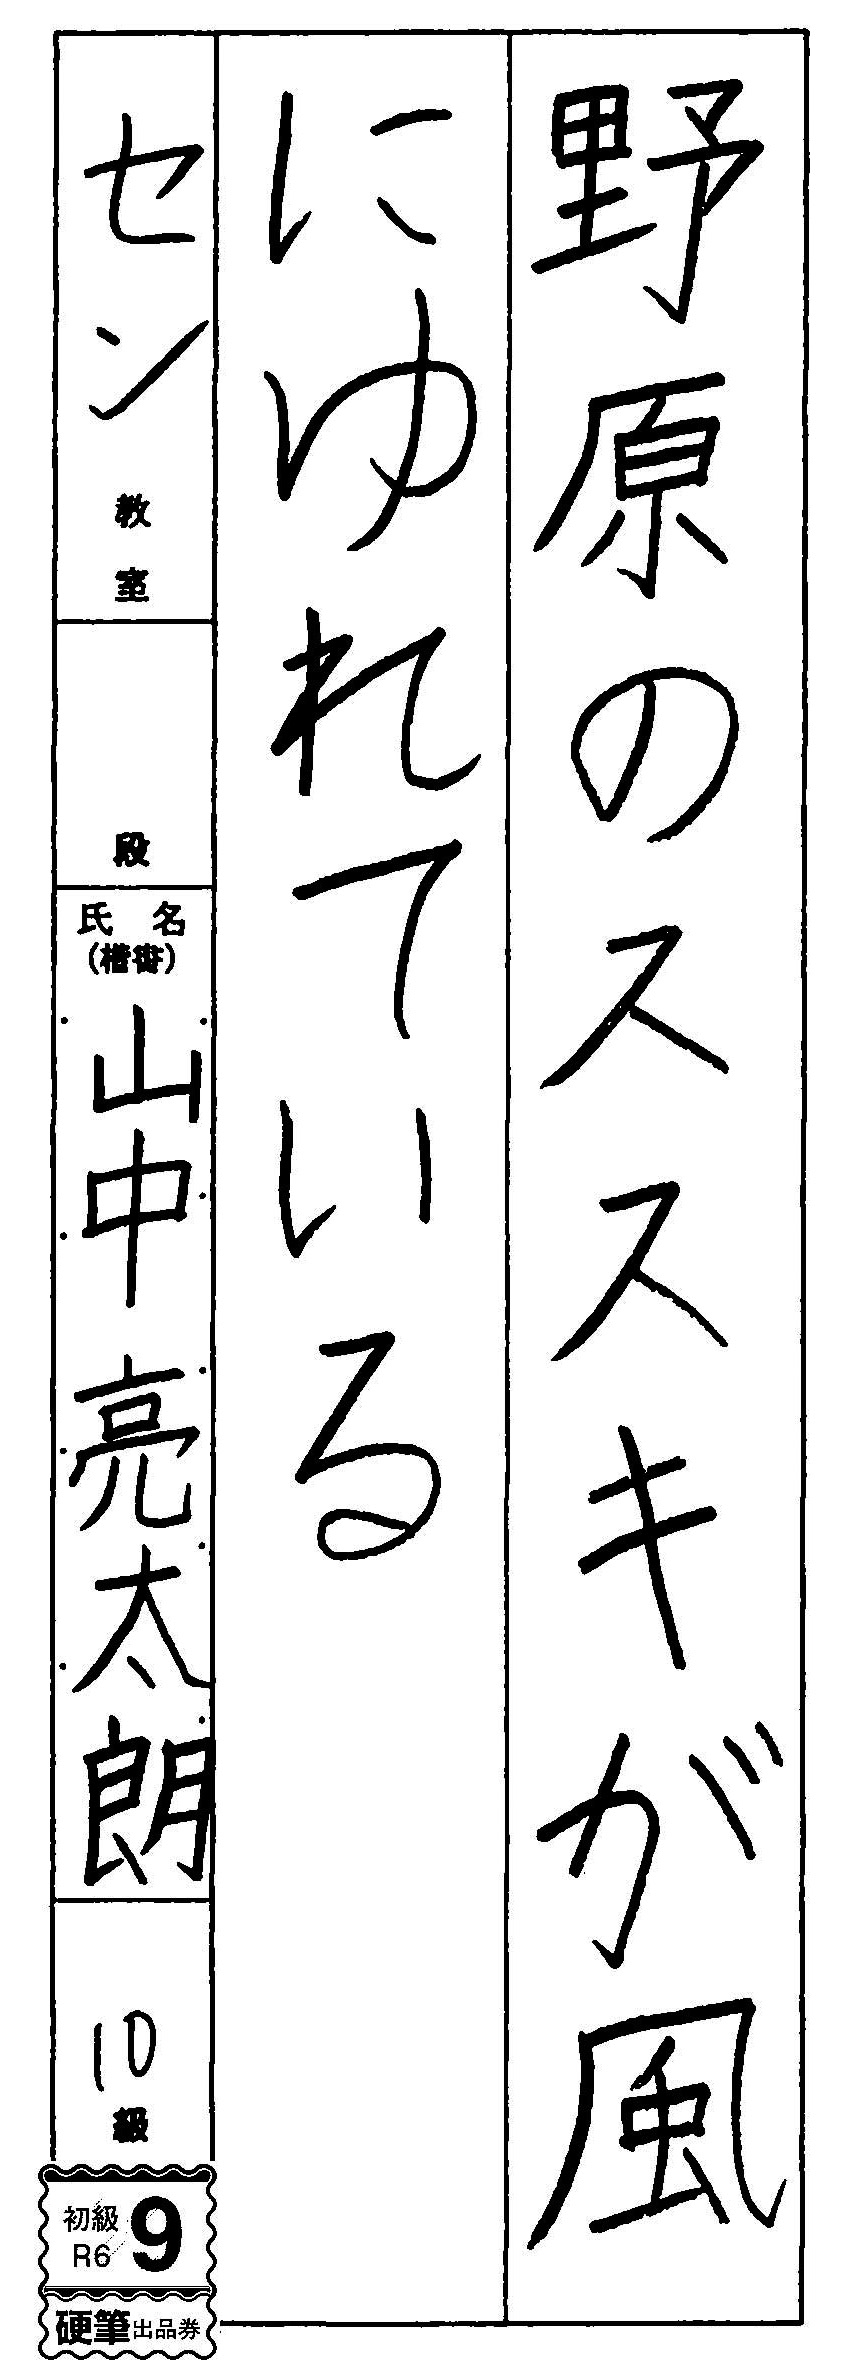 野原のススキが風
にゆれている
セン教室
段
氏名
(楷書)
山中亮太朗
10級
初級
R6
9
硬筆出品券